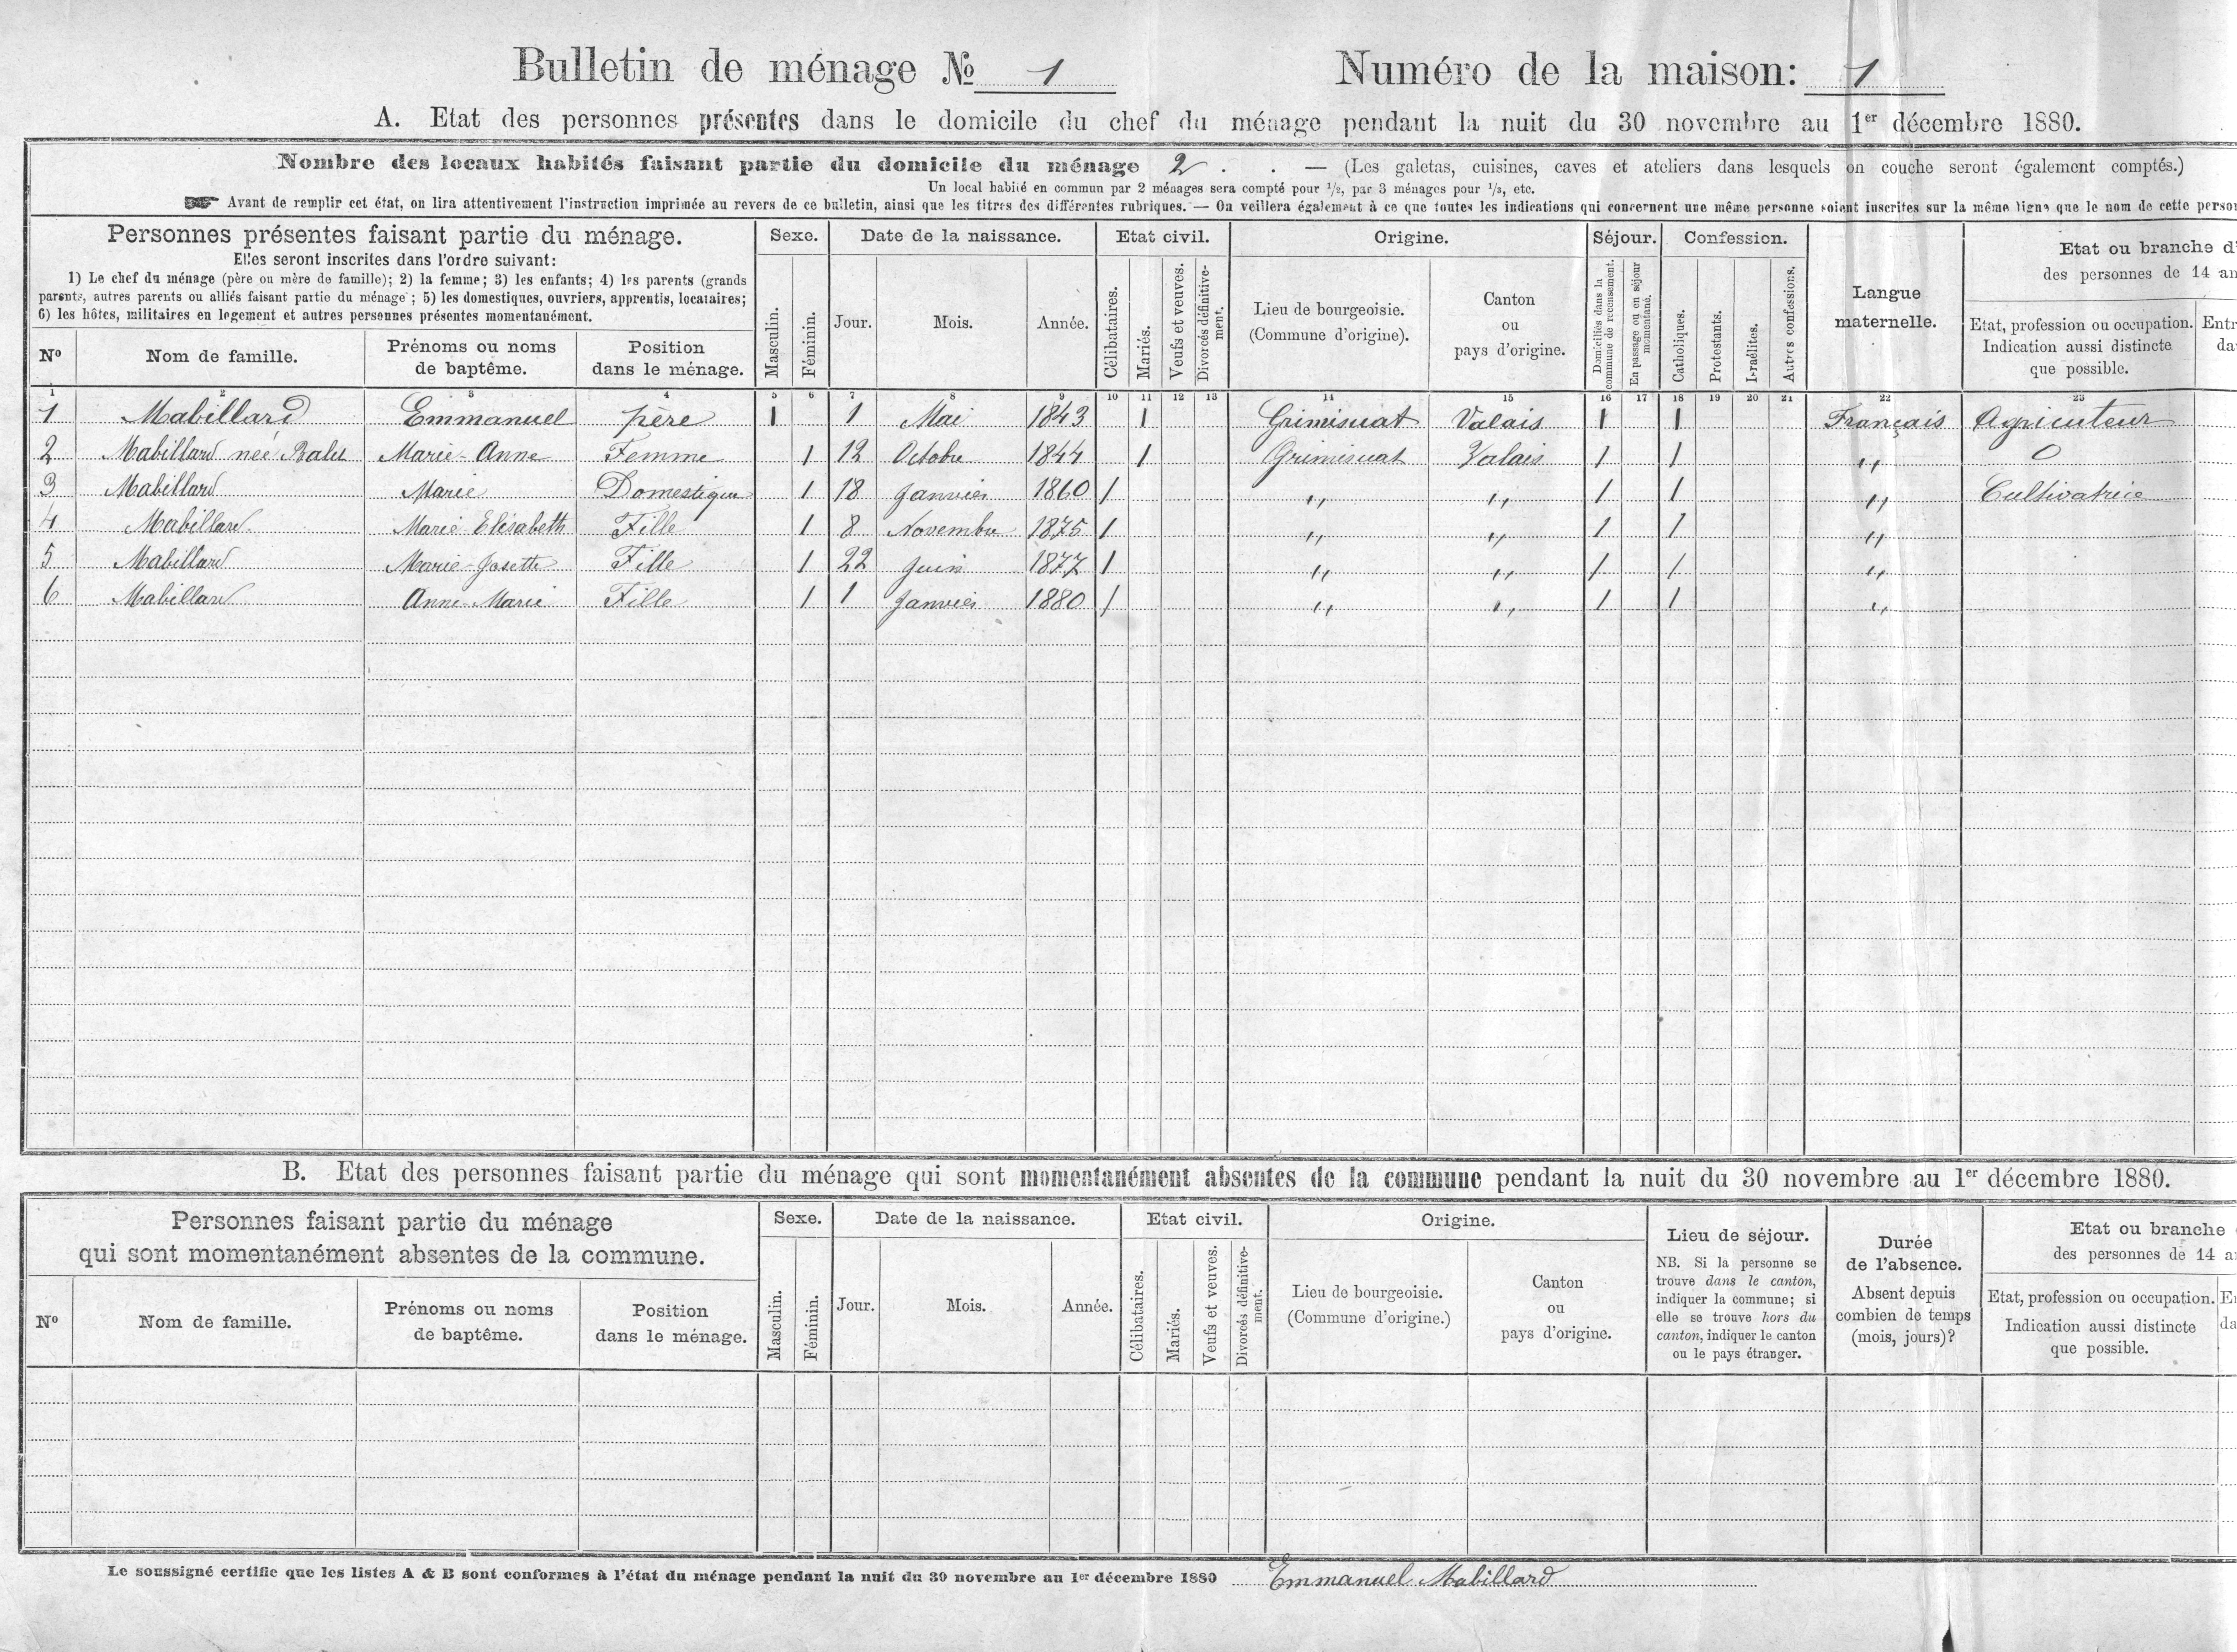 Bulletin de ménage № 1 Numéro de la maison: 1
A. Etat des personnes présentes dans le domicile du chef du ménage pendant la nuit du 30 novembre au 1er décembre 1880.
Nombre des locaux habités faisant partie du domicile du ménage 2 . . — (Les galetas, cuisines, caves et ateliers dans lesquels on couche seront également comptés.)
Un local habité en commun par 2 ménages sera compté pour 1/2, par 3 ménages pour 1/3, etc.
☛ Avant de remplir cet état, on lira attentivement l'instruction imprimée au revers de ce bulletin, ainsi que les titres des différentes rubriques. — On veillera également à ce que toutes les indications qui concernent une même personne soient inscrites sur la même ligne que le nom de cette person
Personnes présentes faisant partie du ménage.
Elles seront inscrites dans l'ordre suivant:
1) Le chef du ménage (père ou mère de famille); 2) la femme; 3) les enfants; 4) les parents (grands
parents, autres parents ou alliés faisant partie du ménage; 5) les domestiques, ouvriers, apprentis, locataires;
6) les hôtes, militaires en logement et autres personnes présentes momentanément.
No
Nom de famille.
Prénoms ou noms
de baptême.
Position
dans le ménage.
Sexe.
Masculin.
Féminin.
Date de la naissance.
Jour.
Mois.
Année.
Etat civil.
Célibataires.
Mariés.
Veufs et veuves.
Divorcés définitive-
ment.
Origine.
Lieu de bourgeoisie.
(Commune d'origine).
Canton
ou
pays d'origine.
Séjour.
Domiciliés dans la
commune de recensement.
En passage ou en séjour
momentané.
Confession.
Catholiques.
Protestants.
Israélites.
Autres confessions.
Langue
maternelle.
Etat ou branche d'
des personnes de 14 an
Etat, profession ou occupation.
Indication aussi distincte
que possible.
Entr
da
1 2 3 4 5 6 7 8 9 10 11 12 13 14 15 16 17 18 19 20 21 22 23
1 Mabillard Emmanuel père 1 1 Mai 1843 1 Grimisuat Valais 1 1 Français Agriculteur
2 Mabillard née Balet Marie-Anne Femme 1 12 Octobre 1844 1 Grimisuat Valais 1 1 " O
3 Mabillard Marie Domestique 1 18 Janvier 1860 1 " " 1 1 " Cultivatrice
4 Mabillard Marie Elisabeth Fille 1 8 Novembre 1875 1 " " 1 1 "
5 Mabillard Marie-Josette Fille 1 22 Juin 1877 1 " " 1 1 "
6 Mabillard Anne-Marie Fille 1 1 Janvier 1880 1 " " 1 1 "
B. Etat des personnes faisant partie du ménage qui sont momentanément absentes de la commune pendant la nuit du 30 novembre au 1er décembre 1880.
Personnes faisant partie du ménage
qui sont momentanément absentes de la commune.
No
Nom de famille.
Prénoms ou noms
de baptême.
Position
dans le ménage.
Sexe.
Masculin.
Féminin.
Date de la naissance.
Jour.
Mois.
Année.
Etat civil.
Célibataires.
Mariés.
Veufs et veuves.
Divorcés définitive-
ment.
Origine.
Lieu de bourgeoisie.
(Commune d'origine.)
Canton
ou
pays d'origine.
Lieu de séjour.
NB. Si la personne se
trouve dans le canton,
indiquer la commune; si
elle se trouve hors du
canton, indiquer le canton
ou le pays étranger.
Durée
de l'absence.
Absent depuis
combien de temps
(mois, jours)?
Etat ou branche
des personnes de 14 a
Etat, profession ou occupation.
Indication aussi distincte
que possible.
E
da
Le soussigné certifie que les listes A & B sont conformes à l'état du ménage pendant la nuit du 30 novembre au 1er décembre 1880 Emmanuel Mabillard